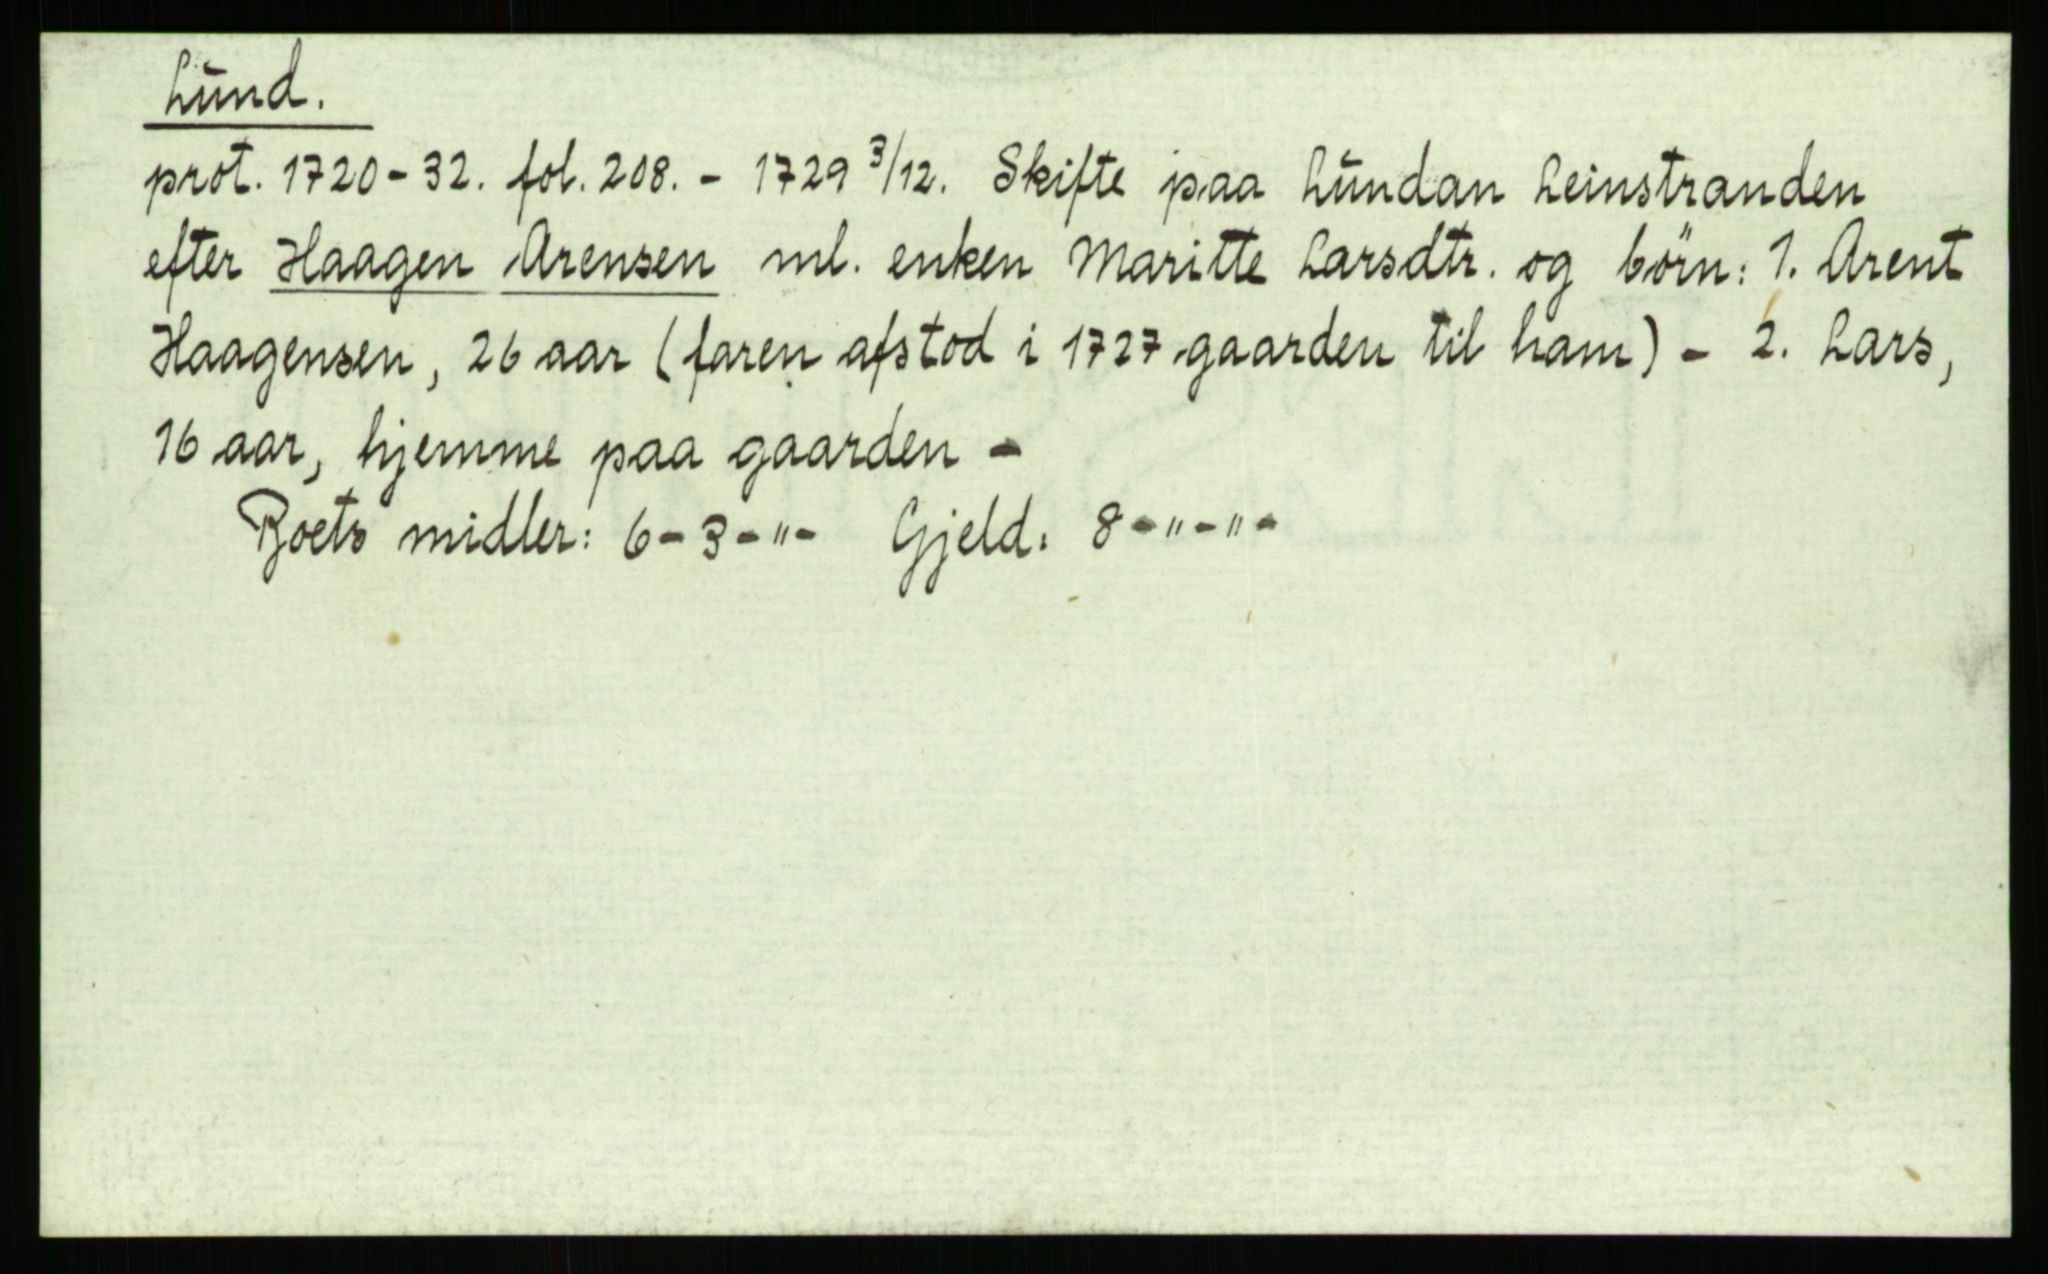 Lund.
prot. 1720-32. fol. 208. - 1729 3/12. Skifte paa Lundan Leinstranden
efter Haagen Arensen ml. enken Maritte Larsdtr. og börn: 1. Arent
Haagensen, 26 aar (faren afstod i 1727 gaarden til ham) - 2. Lars,
16 aar, hjemme paa gaarden -
Boets midler: 6-3-"- Gjeld: 8-"-"-